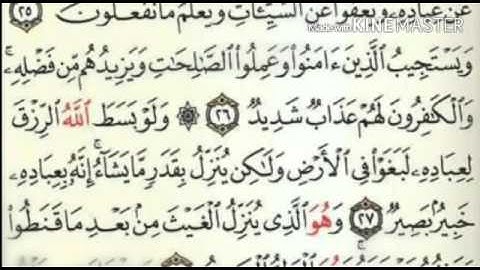 عَنْ عِبَادِهِۦ وَيَعْفُوا۟ عَنِ ٱلسَّيِّـَٔاتِ وَيَعْلَمُ مَا تَفْعَلُونَ ٢٥
Made with KINEMASTER
وَيَسْتَجِيبُ ٱلَّذِينَ ءَامَنُوا۟ وَعَمِلُوا۟ ٱلصَّٰلِحَٰتِ وَيَزِيدُهُم مِّن فَضْلِهِۦۚ
وَٱلْكَٰفِرُونَ لَهُمْ عَذَابٌ شَدِيدٌ ٢٦ ۞ وَلَوْ بَسَطَ ٱللَّهُ ٱلرِّزْقَ
لِعِبَادِهِۦ لَبَغَوْا۟ فِى ٱلْأَرْضِ وَلَٰكِن يُنَزِّلُ بِقَدَرٍ مَّا يَشَآءُۚ إِنَّهُۥ بِعِبَادِهِۦ
خَبِيرٌۢ بَصِيرٌ ٢٧ وَهُوَ ٱلَّذِى يُنَزِّلُ ٱلْغَيْثَ مِنۢ بَعْدِ مَا قَنَطُوا۟